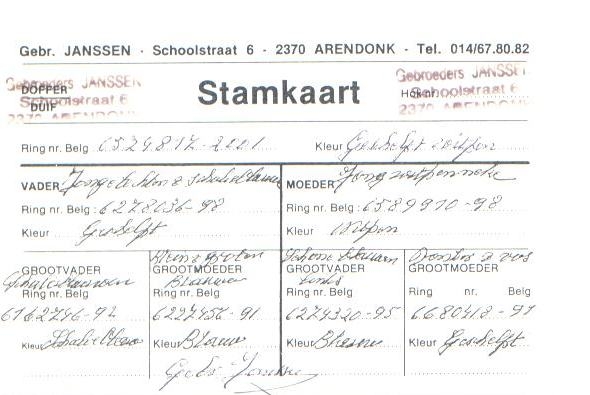 Gebr. JANSSEN · Schoolstraat 6 - 2370 ARENDONK - Tel. 014/67.80.82
Gebroeders JANSSEN
Schoolstraat 6
2370 ARENDONK
DOFFER
DUIF
Stamkaart
Gebroeders JANSSEN
Schoolstraat 6
2370 ARENDONK
Hoknr.
Ring nr. Belg 6524817-2001 Kleur Geschelpt witpen
VADER Jonge
MOEDER Jong witpenneke
Ring nr. Belg : 6278036-98 Ring nr. Belg 6589970-98
Kleur Geschelpt Kleur Witpen
Schone Blauwen Links
GROOTVADER GROOTMOEDER GROOTVADER GROOTMOEDER
Blauwe
Ring nr. Belg Ring nr. Belg Ring nr. Belg Ring nr. Belg
6162746-92 6227456-91 6274320-95 6680418-97
Kleur Kleur Blauw Kleur Kleur Geschelpt
Gebr. Janssen